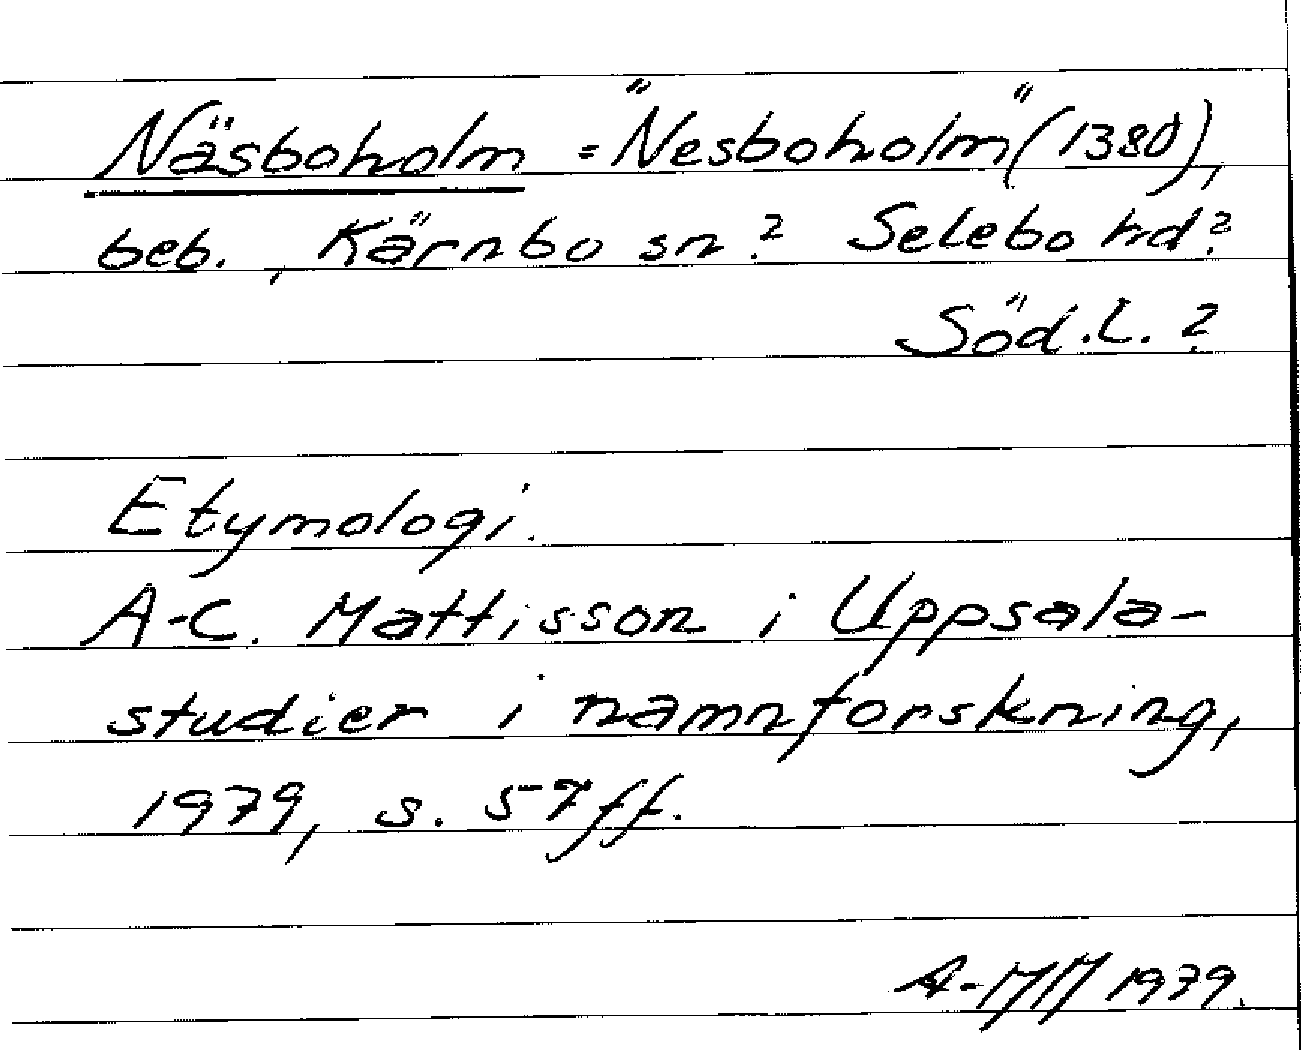 Näsboholm = "Nesboholm" (1380),
beb., Kärnbo sn? Selebo hd?
Söd.l.?
Etymologi.
A-C. Mattisson i Uppsala-
studier i namnforskning,
1979, s. 57ff.
A-MM 1979.